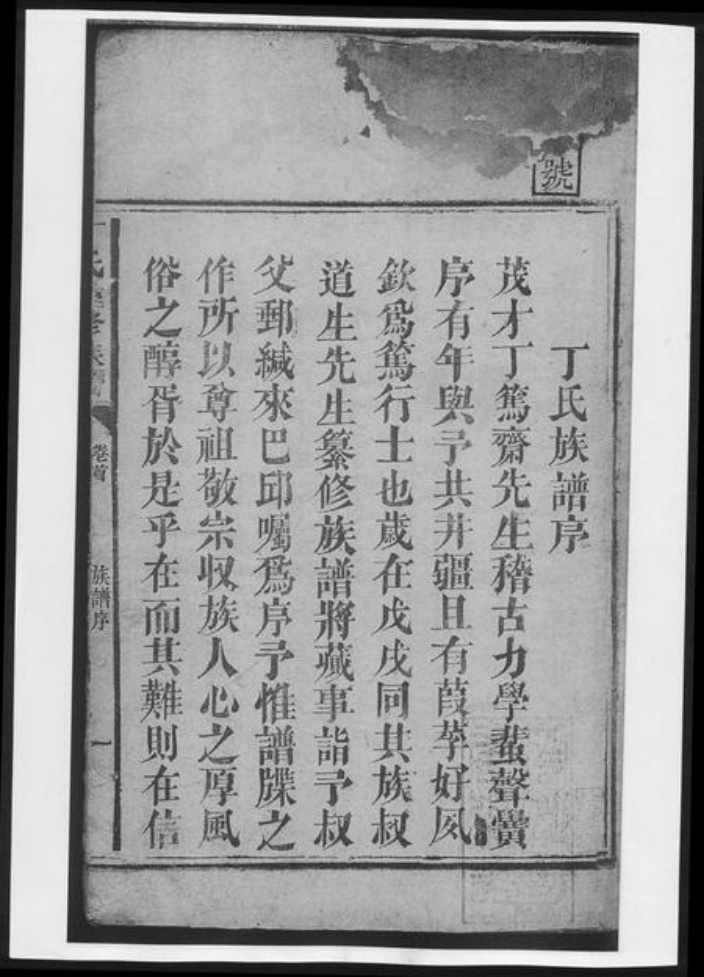 號
丁氏族譜序
茂才丁篤齋先生稽古力學蜚聲黌
序有年與予共井疆且有葭莩好夙
欽爲篤行士也歲在戊戌同其族叔
道生先生纂修族譜將蕆事詣予叔
父郵緘來巴邱囑爲序予惟譜牒之
作所以尊祖敬宗収族人心之厚風
俗之醇胥於是乎在而其難則在信
丁氏重修族譜
卷首
族譜序
一